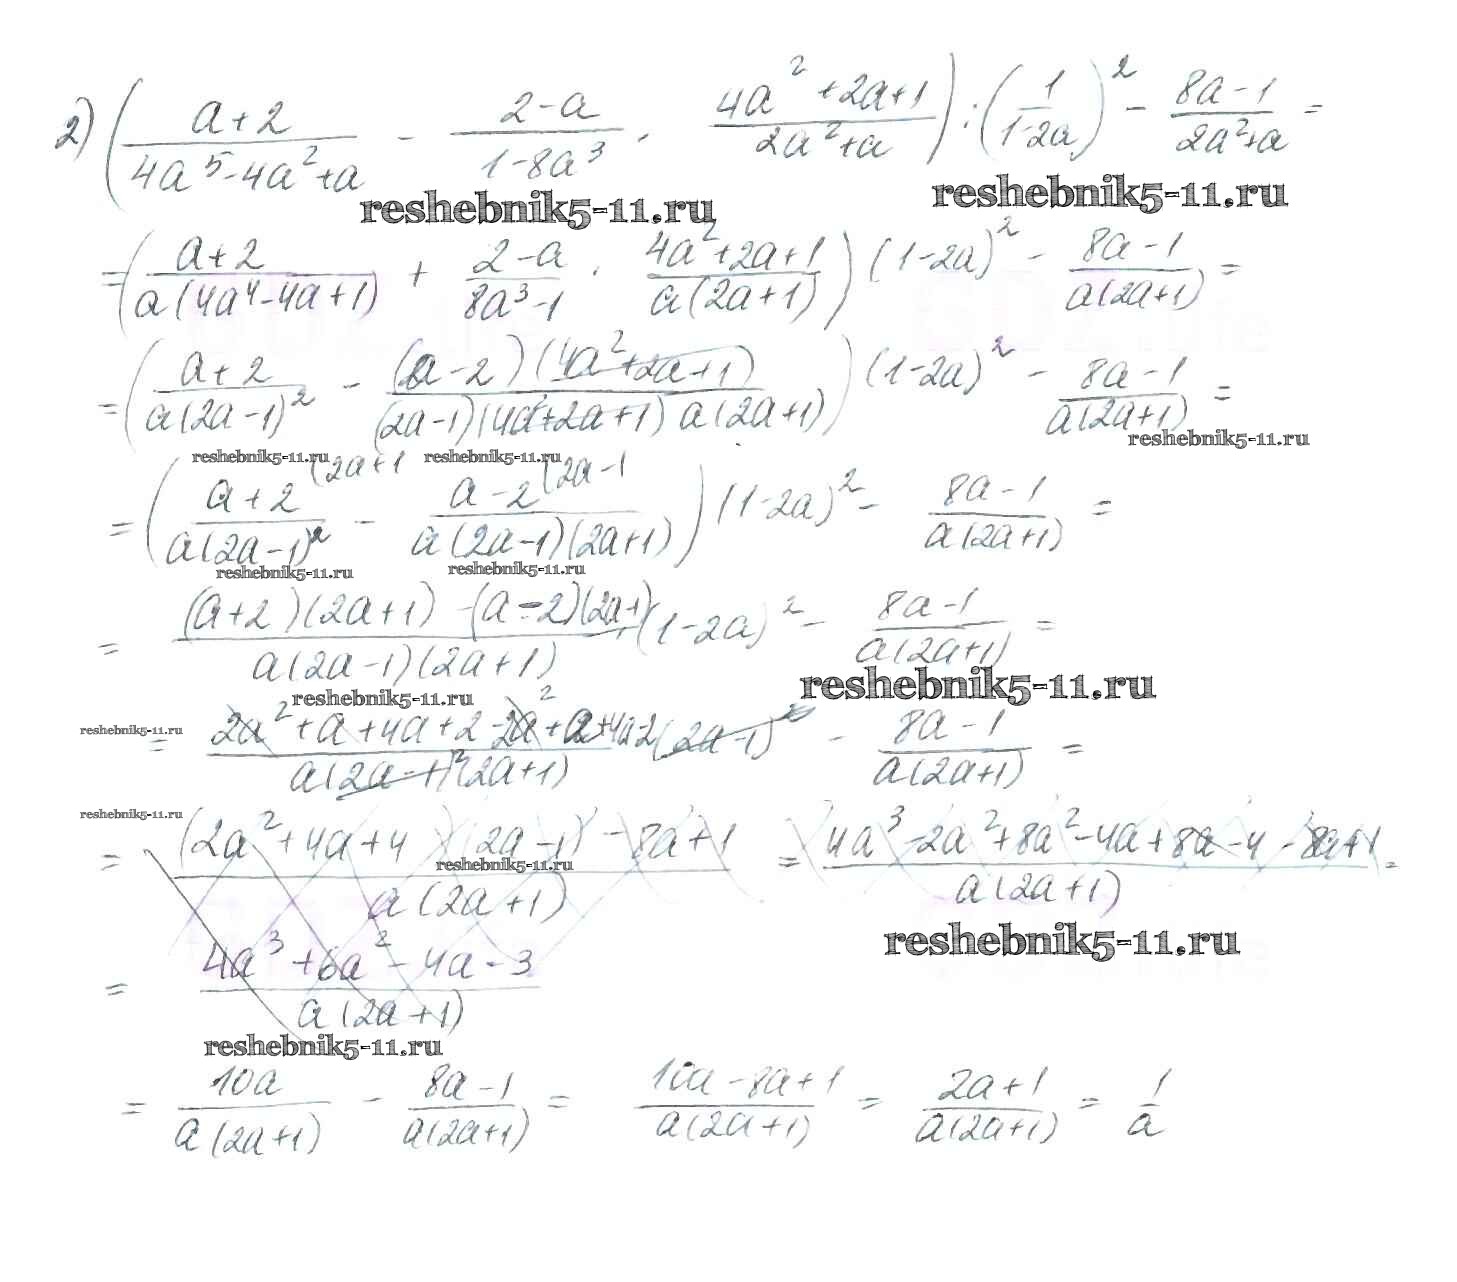 2) ( (a+2)/(4a⁵-4a²+a) - (2-a)/(1-8a³) · (4a²+2a+1)/(2a²+a) ) : (1/(1-2a))² - (8a-1)/(2a²+a) =
reshebnik5-11.ru reshebnik5-11.ru
= ( (a+2)/(a(4a⁴-4a+1)) + (2-a)/(8a³-1) · (4a²+2a+1)/(a(2a+1)) ) (1-2a)² - (8a-1)/(a(2a+1)) =
= ( (a+2)/(a(2a-1)²) - ((a-2)(4a²+2a+1))/((2a-1)(4a²+2a+1) a(2a+1)) ) (1-2a)² - (8a-1)/(a(2a+1)) =
reshebnik5-11.ru
reshebnik5-11.ru reshebnik5-11.ru
(2a+1 (2a-1
= ( (a+2)/(a(2a-1)²) - (a-2)/(a(2a-1)(2a+1)) ) (1-2a)² - (8a-1)/(a(2a+1)) =
reshebnik5-11.ru reshebnik5-11.ru
= ((a+2)(2a+1) - (a-2)(2a-1))/(a(2a-1)(2a+1)) · (1-2a)² - (8a-1)/(a(2a+1)) =
reshebnik5-11.ru reshebnik5-11.ru
reshebnik5-11.ru
= (2a²+a+4a+2-2a²+a+4a-2)/(a(2a-1)²(2a+1)) (2a-1)² - (8a-1)/(a(2a+1)) =
reshebnik5-11.ru
= ((2a²+4a+4)(2a-1) - 8a+1)/(a(2a+1)) = (4a³-2a²+8a²-4a+8a-4-8a+1)/(a(2a+1)) =
reshebnik5-11.ru
reshebnik5-11.ru
= (4a³+6a²-4a-3)/(a(2a+1))
reshebnik5-11.ru
= 10a/(a(2a+1)) - (8a-1)/(a(2a+1)) = (10a-8a+1)/(a(2a+1)) = (2a+1)/(a(2a+1)) = 1/a